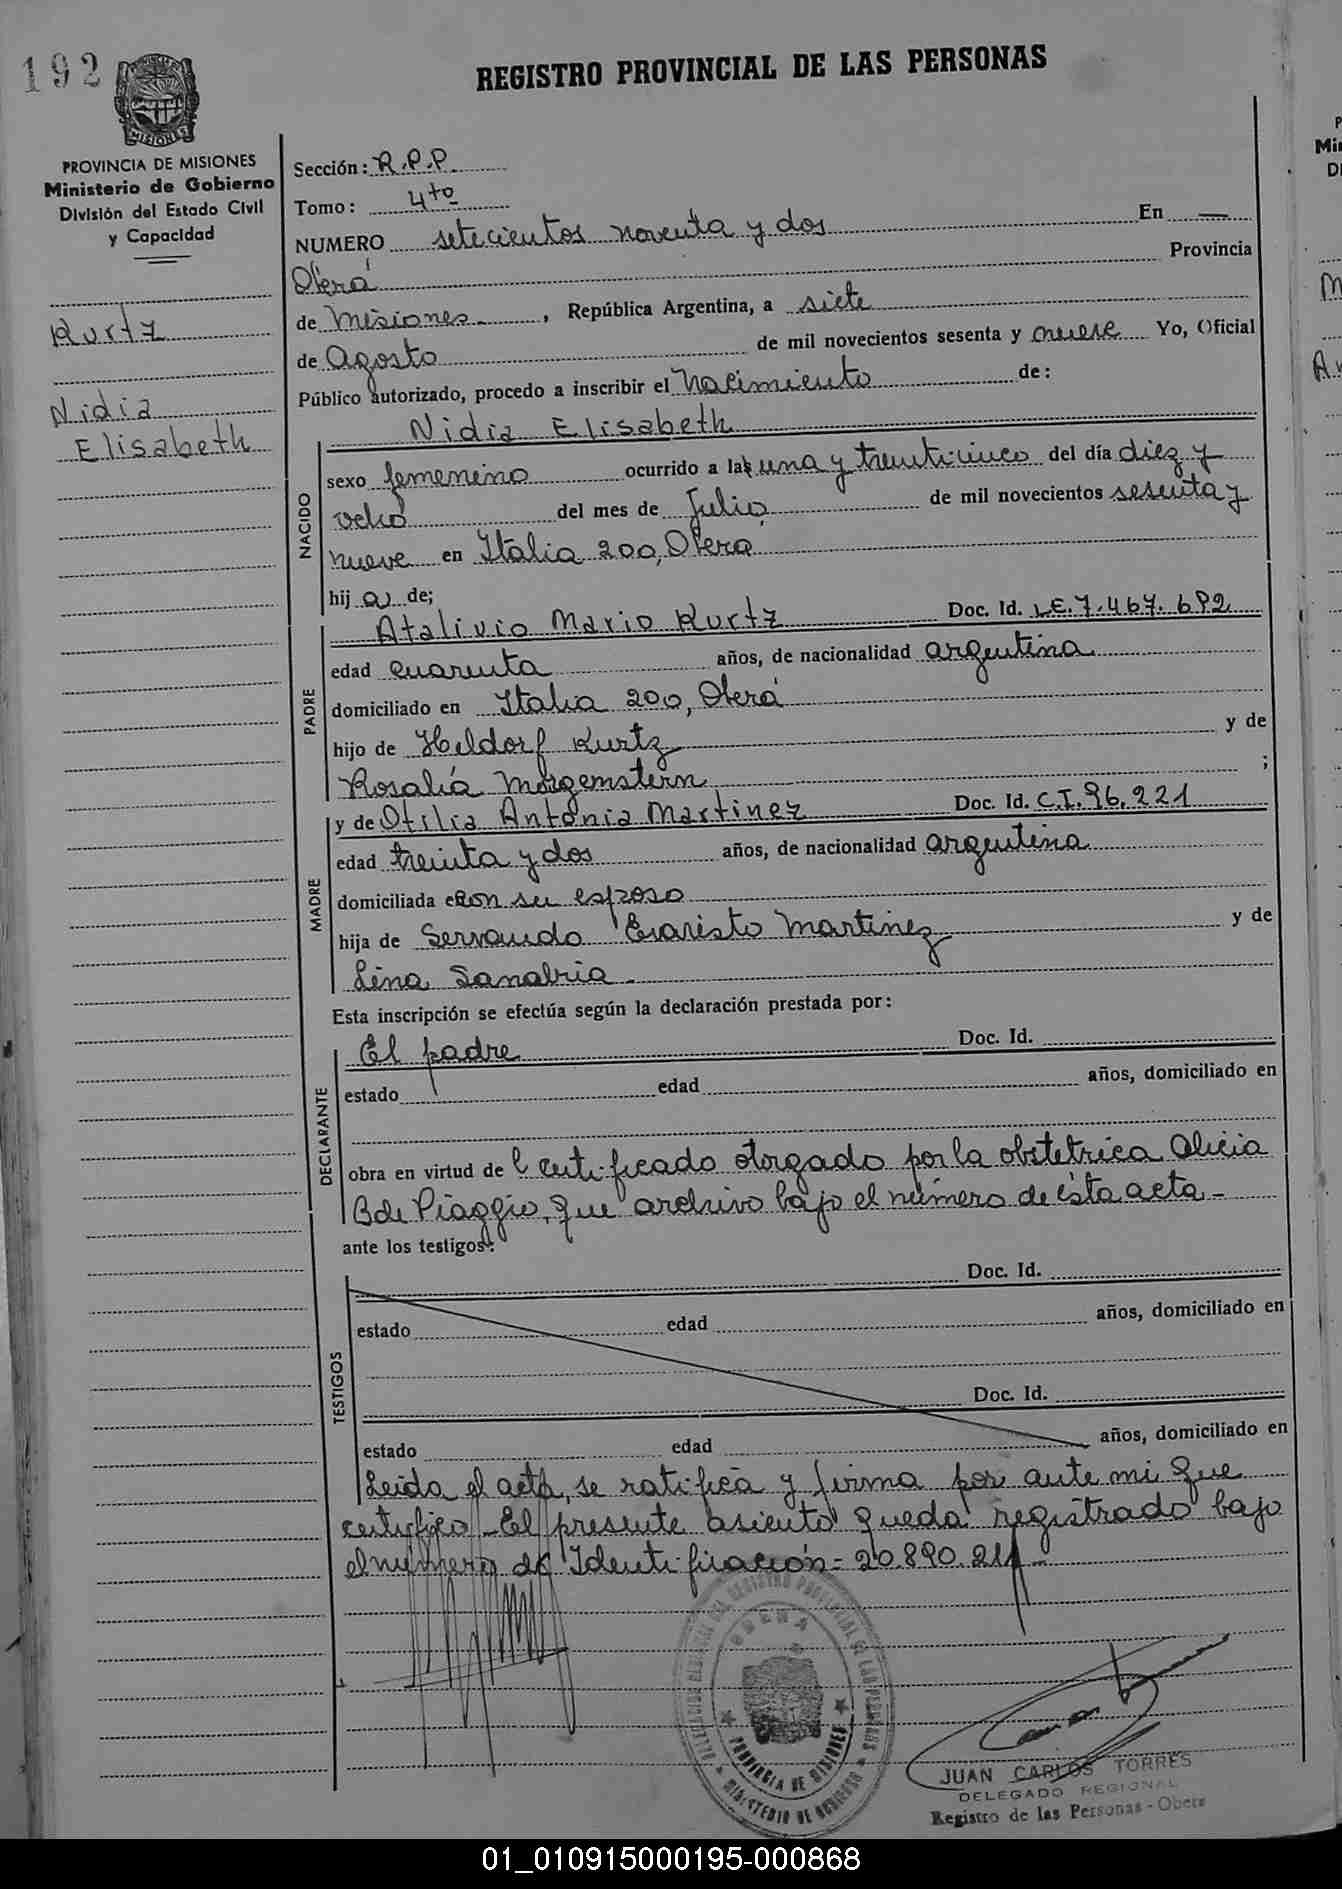 192
REGISTRO PROVINCIAL DE LAS PERSONAS
MISIONES
PROVINCIA DE MISIONES
Ministerio de Gobierno
División del Estado Civil
y Capacidad
Kurtz
Nidia
Elisabeth
Sección: R.P.P.
Tomo: 4to
NUMERO setecientos noventa y dos En —
Oberá Provincia
de Misiones, República Argentina, a siete
de Agosto de mil novecientos sesenta y nueve Yo, Oficial
Público autorizado, procedo a inscribir el Nacimiento de:
Nidia Elisabeth
NACIDO
sexo femenino ocurrido a las una y treinticinco del día diez y
ocho del mes de Julio, de mil novecientos sesenta y
nueve en Italia 200, Oberá
hij a de;
PADRE
Atalivio Mario Kurtz Doc. Id. L.E. 7.467.692
edad cuarenta años, de nacionalidad argentina
domiciliado en Italia 200, Oberá
hijo de Heldorf Kurtz y de
Rosalía Morgemstern ;
MADRE
y de Otilia Antonia Martinez Doc. Id. C.I. 96.221
edad treinta y dos años, de nacionalidad argentina
domiciliada con su esposo
hija de Servando Evaristo Martinez y de
Lina Sanabria
Esta inscripción se efectúa según la declaración prestada por:
DECLARANTE
El padre Doc. Id.
estado edad años, domiciliado en
obra en virtud del certificado otorgado por la obstetrica Alicia
B de Piaggio, que archivo bajo el número de ésta acta -
ante los testigos:
TESTIGOS
Doc. Id.
estado edad años, domiciliado en
Doc. Id.
estado edad años, domiciliado en
Leida el acta, se ratifica y firma por ante mi que
certifico - El presente asiento queda registrado bajo
el número de Identificación = 20.890.211 -
DELEGACION REGIONAL DEL REGISTRO PROVINCIAL DE LAS PERSONAS
OBERA
PROVINCIA DE MISIONES
MINISTERIO DE GOBIERNO
JUAN CARLOS TORRES
DELEGADO REGIONAL
Registro de las Personas - Obera
01_010915000195-000868